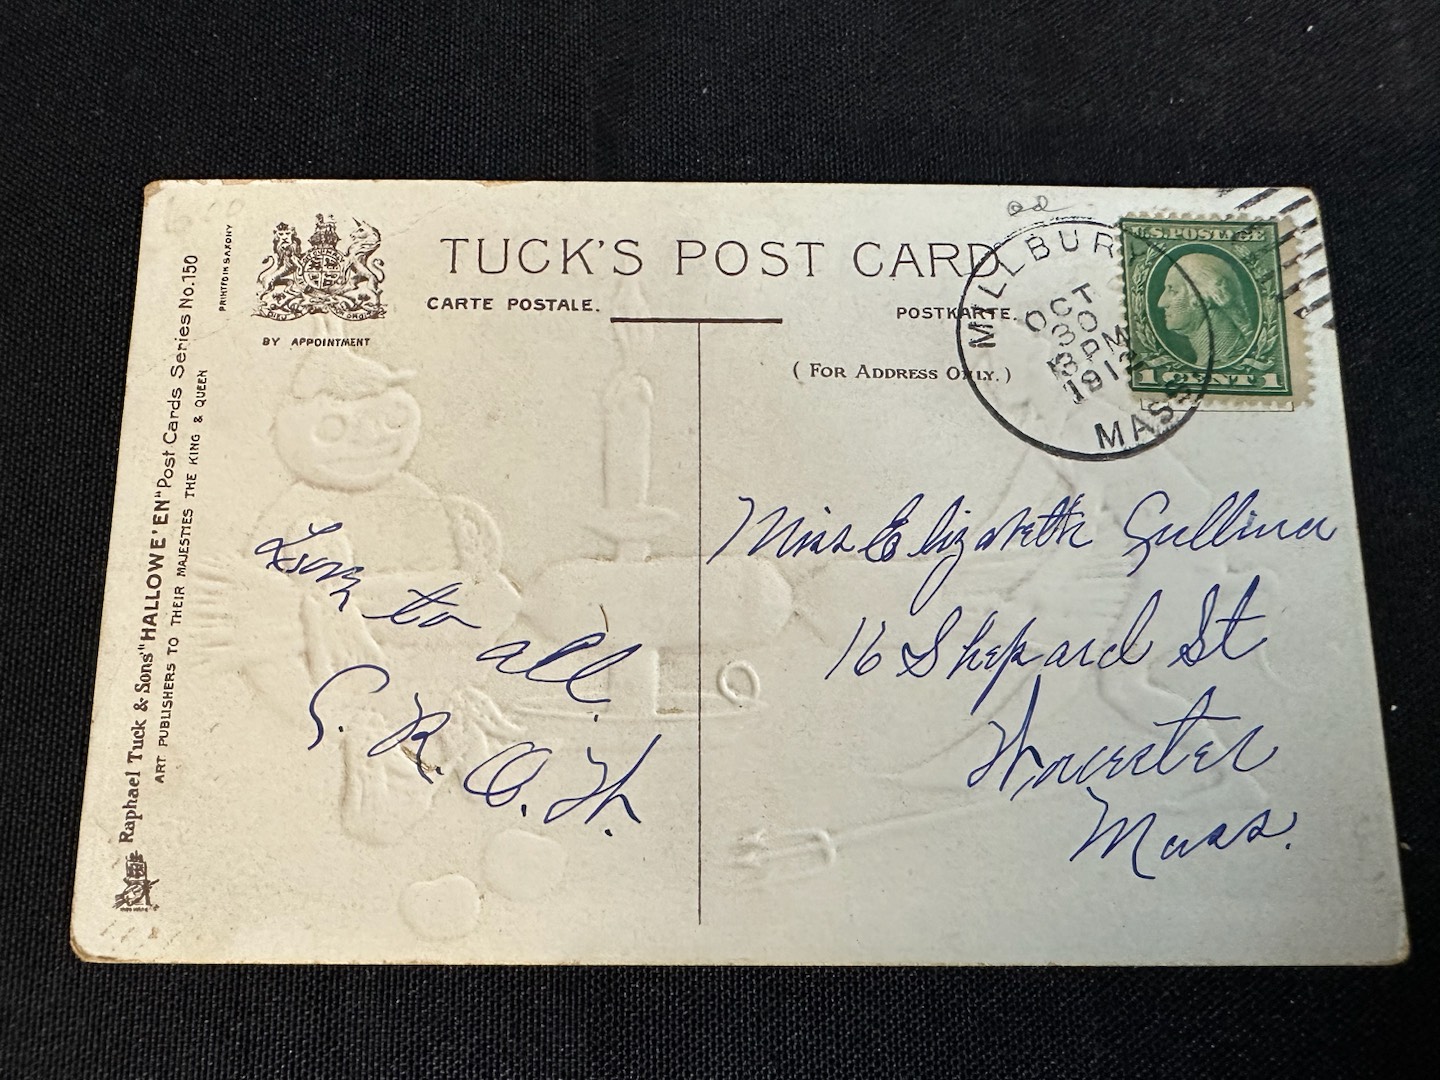 TUCK'S POST CARD
CARTE POSTALE.
POSTKARTE.
(FOR ADDRESS ONLY.)
BY APPOINTMENT
PRINTED IN SAXONY
Raphael Tuck & Sons' "HALLOWE'EN" Post Cards Series No. 150
ART PUBLISHERS TO THEIR MAJESTIES THE KING & QUEEN
MILLBUR
OCT
30
PM
MASS
U.S. POSTAGE
1 CENT 1
to all.
Miss Elizabeth
16 Shepard St
Worcester
Mass.